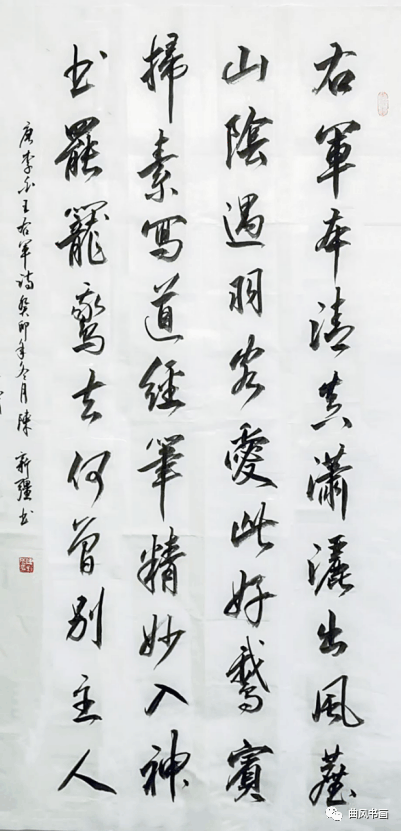 右軍本清真瀟灑出風塵
山陰遇羽客愛此好鵝賓
掃素寫道經筆精妙入神
书罷籠鵞去何曾別主人
唐李白王右军诗癸卯年冬月陳新疆书
曲风书画